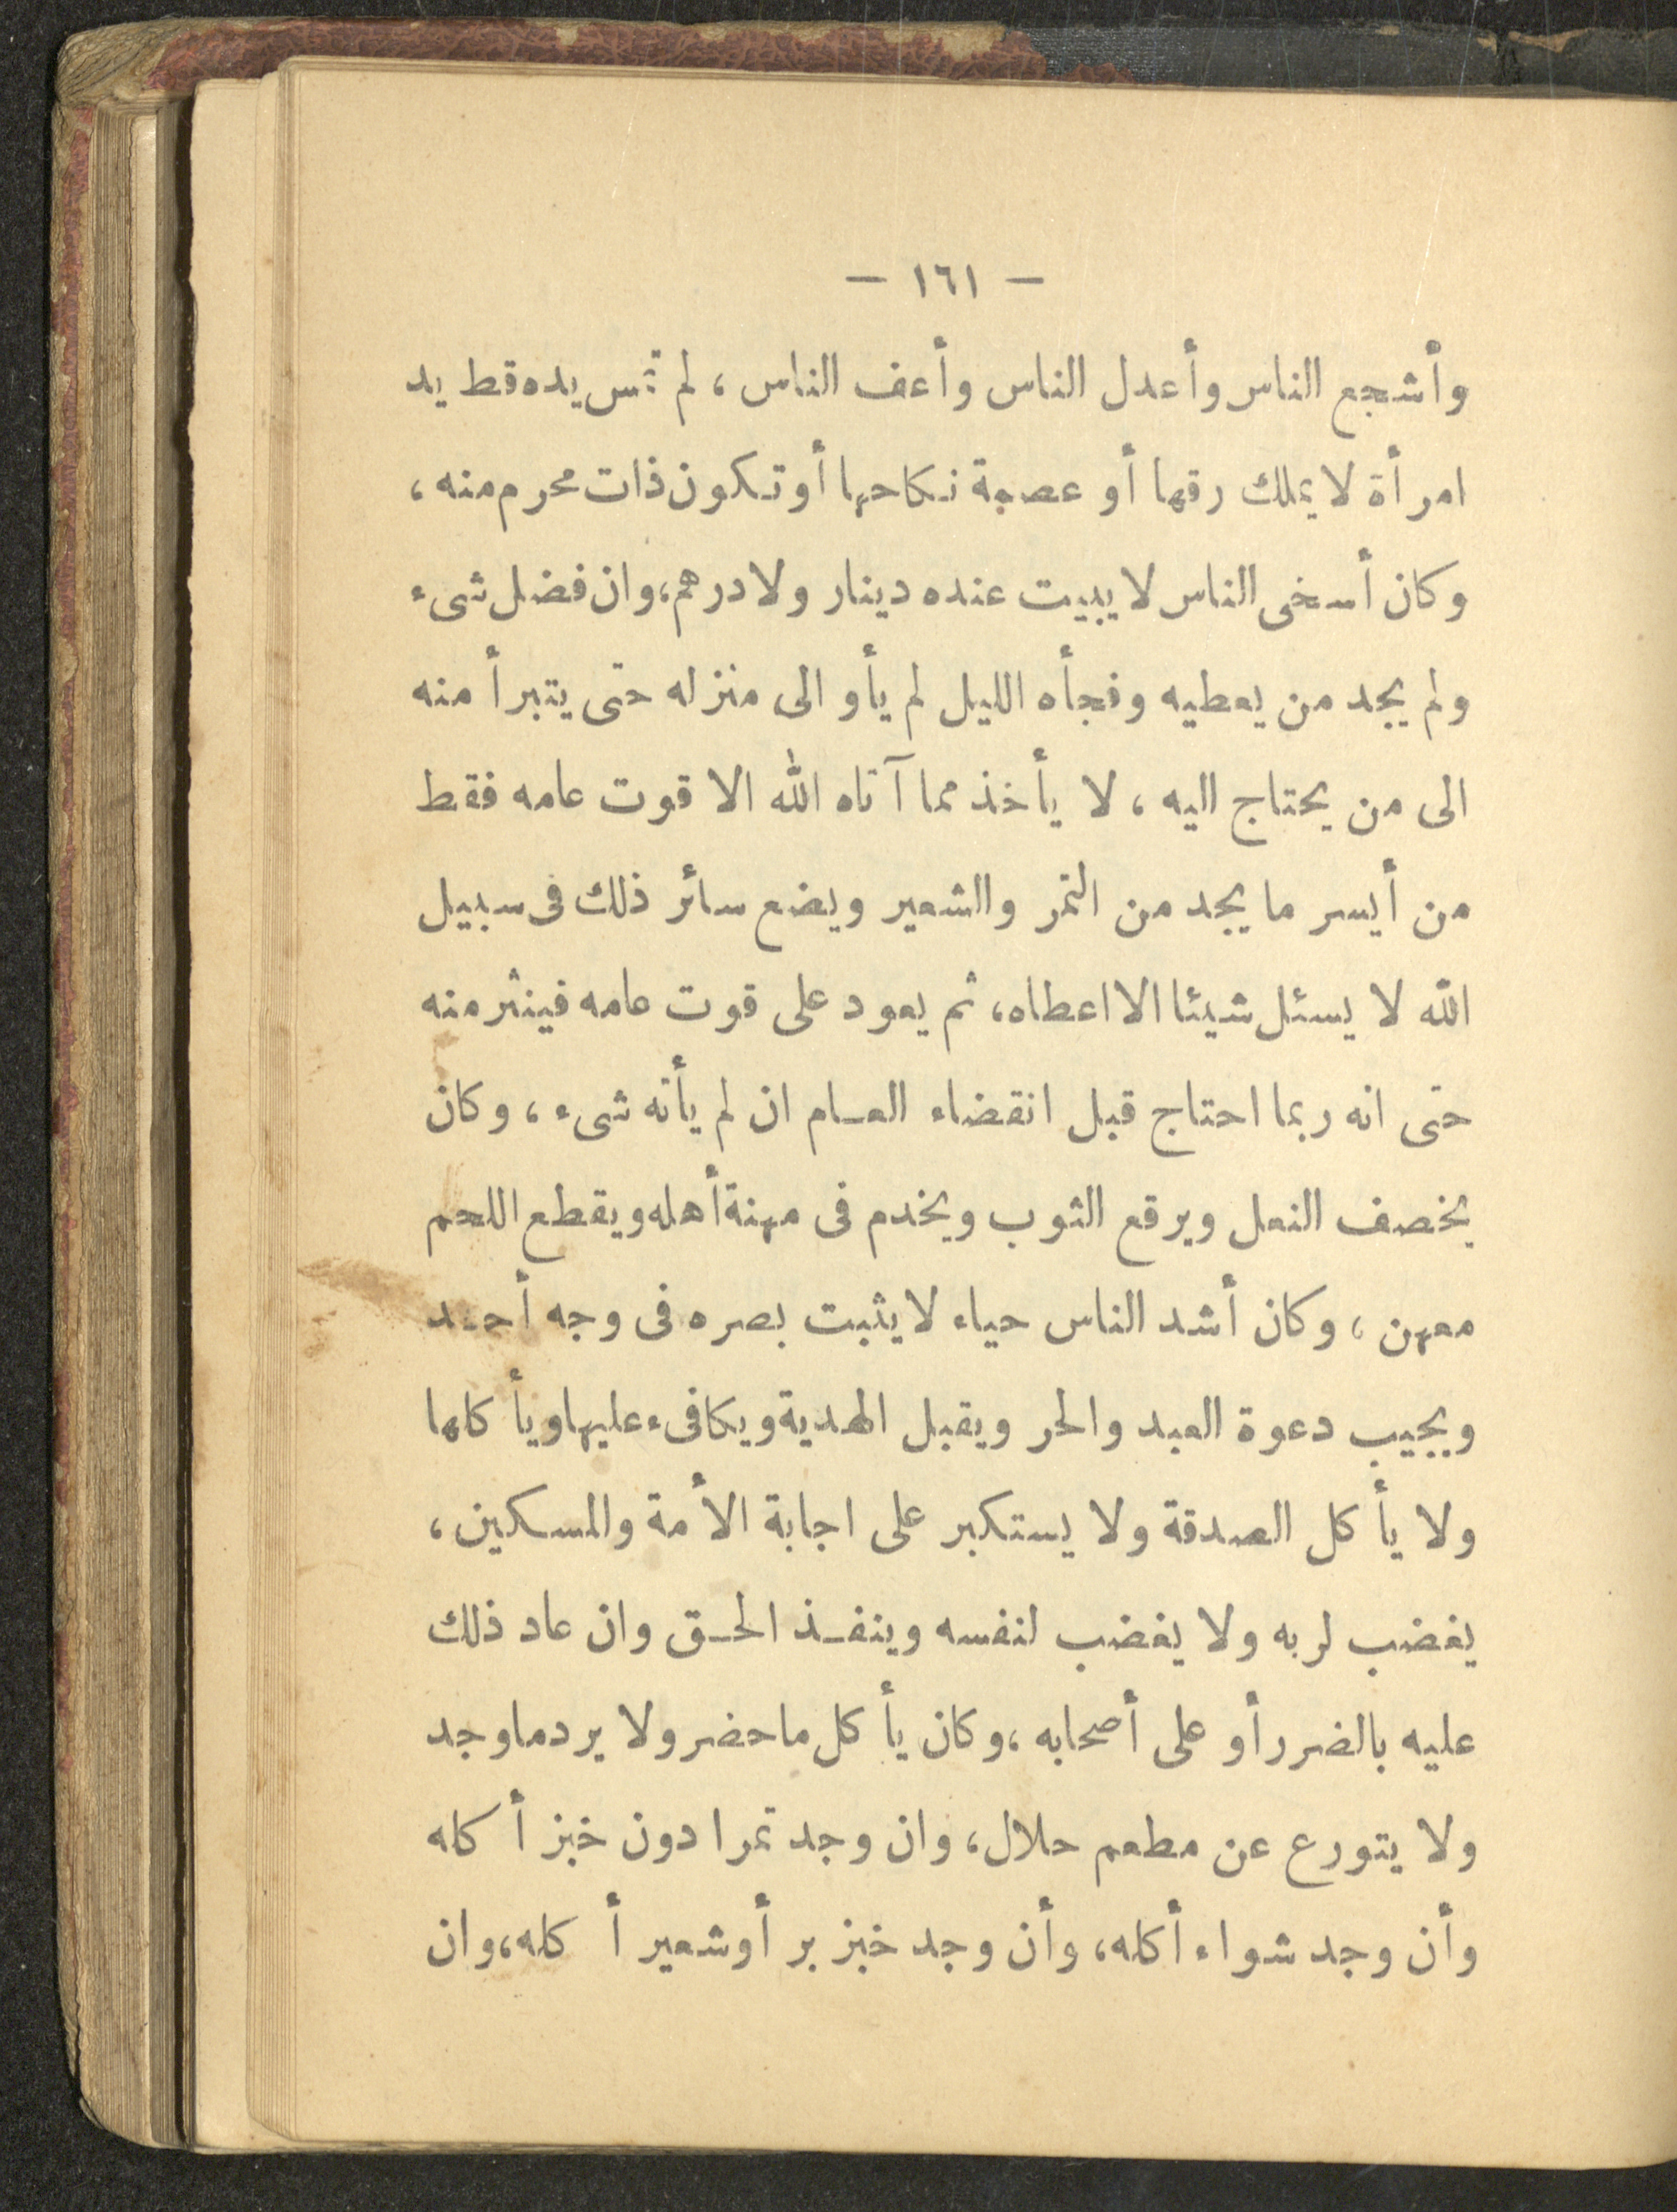 — ١٦١ —
وأشجع الناس وأعدل الناس وأعف الناس ، لم تمس يده قط يد
امرأة لا يملك رقها أو عصمة نكاحها أو تكون ذات محرم منه ،
وكان أسخى الناس لا يبيت عنده دينار ولا درهم، وان فضل شىء
ولم يجد من يعطيه وفجأه الليل لم يأو الى منزله حتى يتبرأ منه
الى من يحتاج اليه ، لا يأخذ مما آتاه الله الا قوت عامه فقط
من أيسر ما يجد من التمر والشعير ويضع سائر ذلك فى سبيل
الله لا يسئل شيئا الا اعطاه، ثم يعود على قوت عامه فينثر منه
حتى انه ربما احتاج قبل انقضاء العـام ان لم يأته شىء ، وكان
يخصف النعل ويرقع الثوب ويخدم فى مهنة أهله ويقطع اللحم
معهن ، وكان أشد الناس حياء لا يثبت بصره فى وجه أحـد
ويجيب دعوة العبد والحر ويقبل الهدية ويكافىء عليها ويأكلها
ولا يأكل الصدقة ولا يستكبر على اجابة الأمة والمسكين ،
يغضب لربه ولا يغضب لنفسه وينفـذ الحـق وان عاد ذلك
عليه بالضرر أو على أصحابه ، وكان يأكل ما حضر ولا يرد ما وجد
ولا يتورع عن مطعم حلال، وان وجد تمرا دون خبز أكله
وأن وجد شواء أكله، وأن وجد خبز بر أو شعير أكله، وان